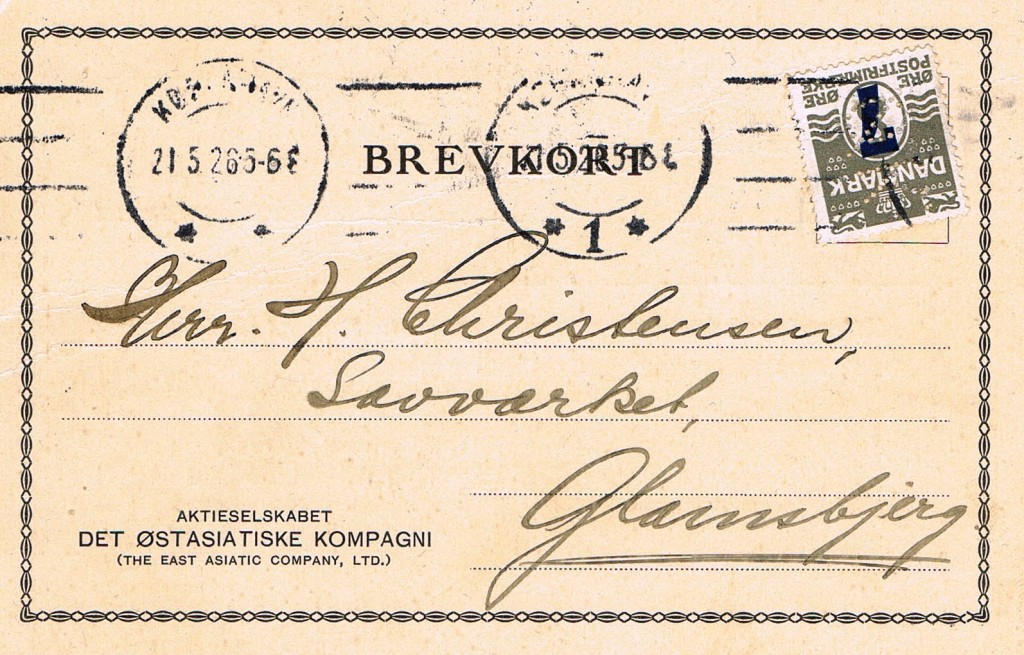 21 5 26 5-6 E
BREVKORT
1
7
ØRE
POSTFRIM
ØRE
DANMARK
Hrr. H. Christensen,
Savværket,
Glamsbjerg
AKTIESELSKABET
DET ØSTASIATISKE KOMPAGNI
(THE EAST ASIATIC COMPANY, LTD.)